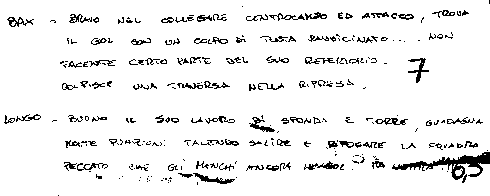 BAX - BRAVO NEL COLLEGARE CENTROCAMPO ED ATTACCO, TROVA
IL GOL CON UN COLPO DI TESTA RAVVICINATO... NON
FACENTE CERTO PARTE DEL SUO REPERTORIO. 7
COLPISCE UNA TRAVERSA NELLA RIPRESA.
LONGO - BUONO IL SUO LAVORO DI SPONDA E TORRE, GUADAGNA
MOLTE PUNIZIONI FACENDO SALIRE E RIFIATARE LA SQUADRA
PECCATO CHE GLI MANCHI ANCORA